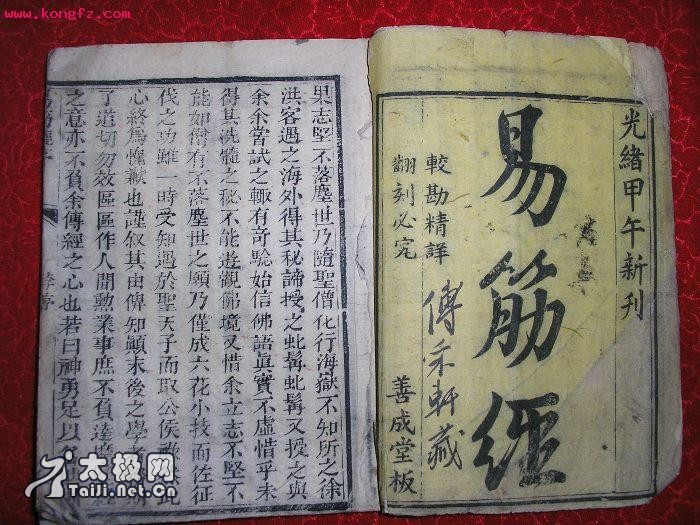 www.kongfz.com
光緒甲午新刊
易筋經
較勘精詳
翻刻必究
傅 軒藏
善成堂板
果志堅不落塵世乃隨聖僧化行海嶽不知所之徐
洪客遇之海外得其秘諦授之虬髯虬髯又授之與
余余嘗試之輒有奇驗始信佛語眞實不虛惜乎未
得其洗髓之秘不能遊觀佛境又惜余立志不堅不
能如僧有不落塵世之願乃僅成六花小技而佐征
伐之功雖一時受知遇於聖天子而取公侯
心終爲憾歉也謹叙其由俾知顛末後之學
了道切勿效區區作人間勲業事庶不負達
之意亦不負余傳經之心也若曰神勇足以
太极网
Taiji.net.cn